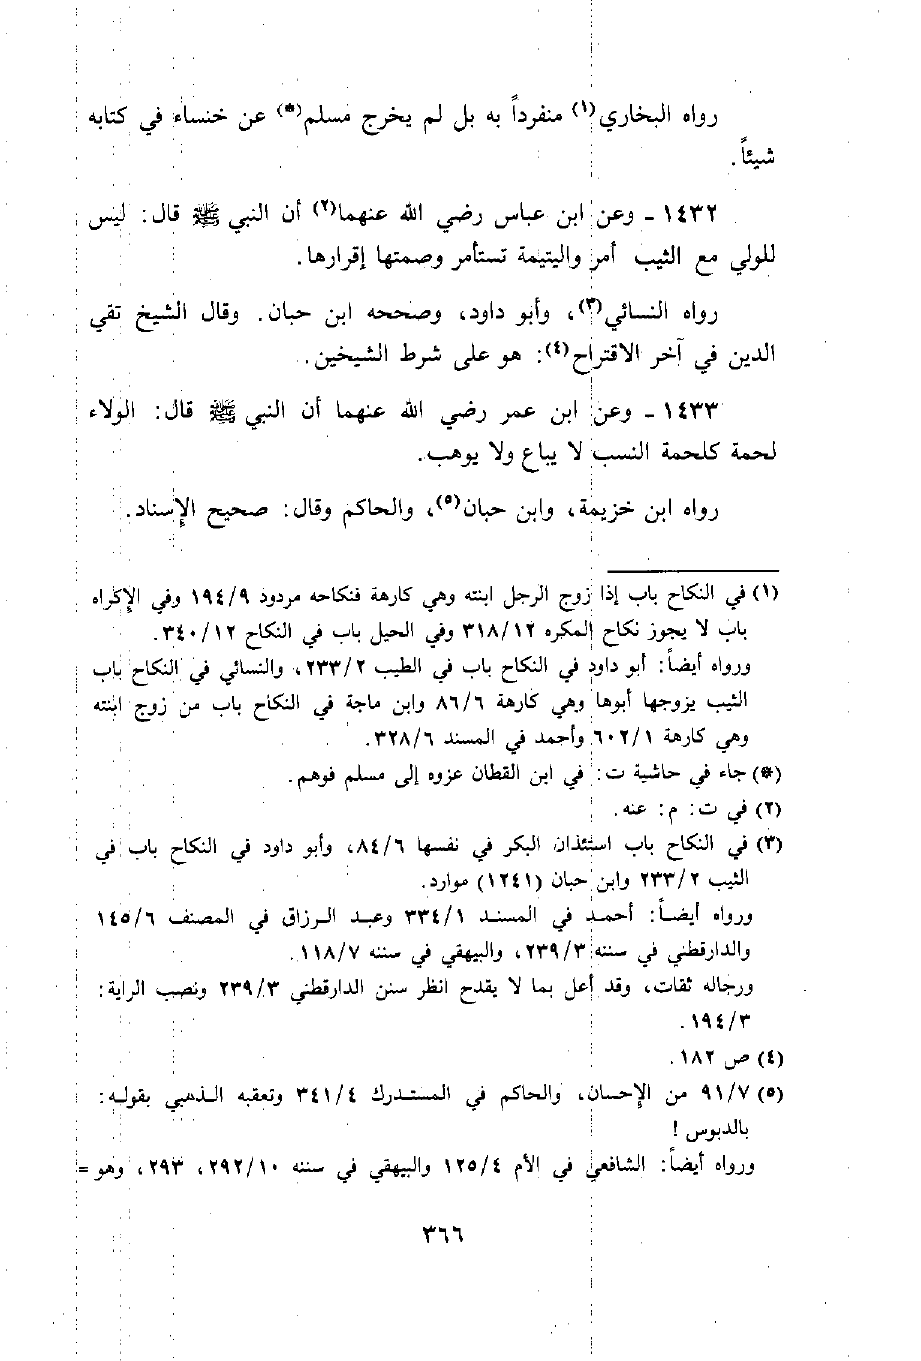 رواه البخاري(١) منفرداً به بل لم يخرج مسلم(*) عن خنساء في كتابه
شيئاً.
١٤٣٢ ـ وعن ابن عباس رضي الله عنهما(٢) أن النبي ﷺ قال: ليس
للولي مع الثيب أمر واليتيمة تستأمر وصمتها إقرارها.
رواه النسائي(٣)، وأبو داود، وصححه ابن حبان. وقال الشيخ تقي
الدين في آخر الاقتراح(٤): هو على شرط الشيخين.
١٤٣٣ ـ وعن ابن عمر رضي الله عنهما أن النبي ﷺ قال: الولاء
لحمة كلحمة النسب لا يباع ولا يوهب.
رواه ابن خزيمة، وابن حبان(٥)، والحاكم وقال: صحيح الإسناد.
(١) في النكاح باب إذا زوج الرجل ابنته وهي كارهة فنكاحه مردود ١٩٤/٩ وفي الإكراه
باب لا يجوز نكاح المكره ٣١٨/١٢ وفي الحيل باب في النكاح ٣٤٠/١٢.
ورواه أيضاً: أبو داود في النكاح باب في الطيب ٢٣٣/٢، والنسائي في النكاح باب
الثيب يزوجها أبوها وهي كارهة ٨٦/٦ وابن ماجة في النكاح باب من زوج ابنته
وهي كارهة ٦٠٢/١ وأحمد في المسند ٣٢٨/٦.
(*) جاء في حاشية ت: في ابن القطان عزوه إلى مسلم فوهم.
(٢) في ت: م: عنه.
(٣) في النكاح باب استئذان البكر في نفسها ٨٤/٦، وأبو داود في النكاح باب في
الثيب ٢٣٣/٢ وابن حبان (١٢٤١) موارد.
ورواه أيضاً: أحمد في المسند ٣٣٤/١ وعبد الرزاق في المصنف ١٤٥/٦
والدارقطني في سننه ٢٣٩/٣، والبيهقي في سننه ١١٨/٧.
ورجاله ثقات، وقد أعل بما لا يقدح انظر سنن الدارقطني ٢٣٩/٣ ونصب الراية:
١٩٤/٣.
(٤) ص ١٨٢.
(٥) ٩١/٧ من الإحسان، والحاكم في المستدرك ٣٤١/٤ وتعقبه الذهبي بقوله:
بالدبوس !
ورواه أيضاً: الشافعي في الأم ١٢٥/٤ والبيهقي في سننه ٢٩٢/١٠، ٢٩٣، وهو =
٣٦٦